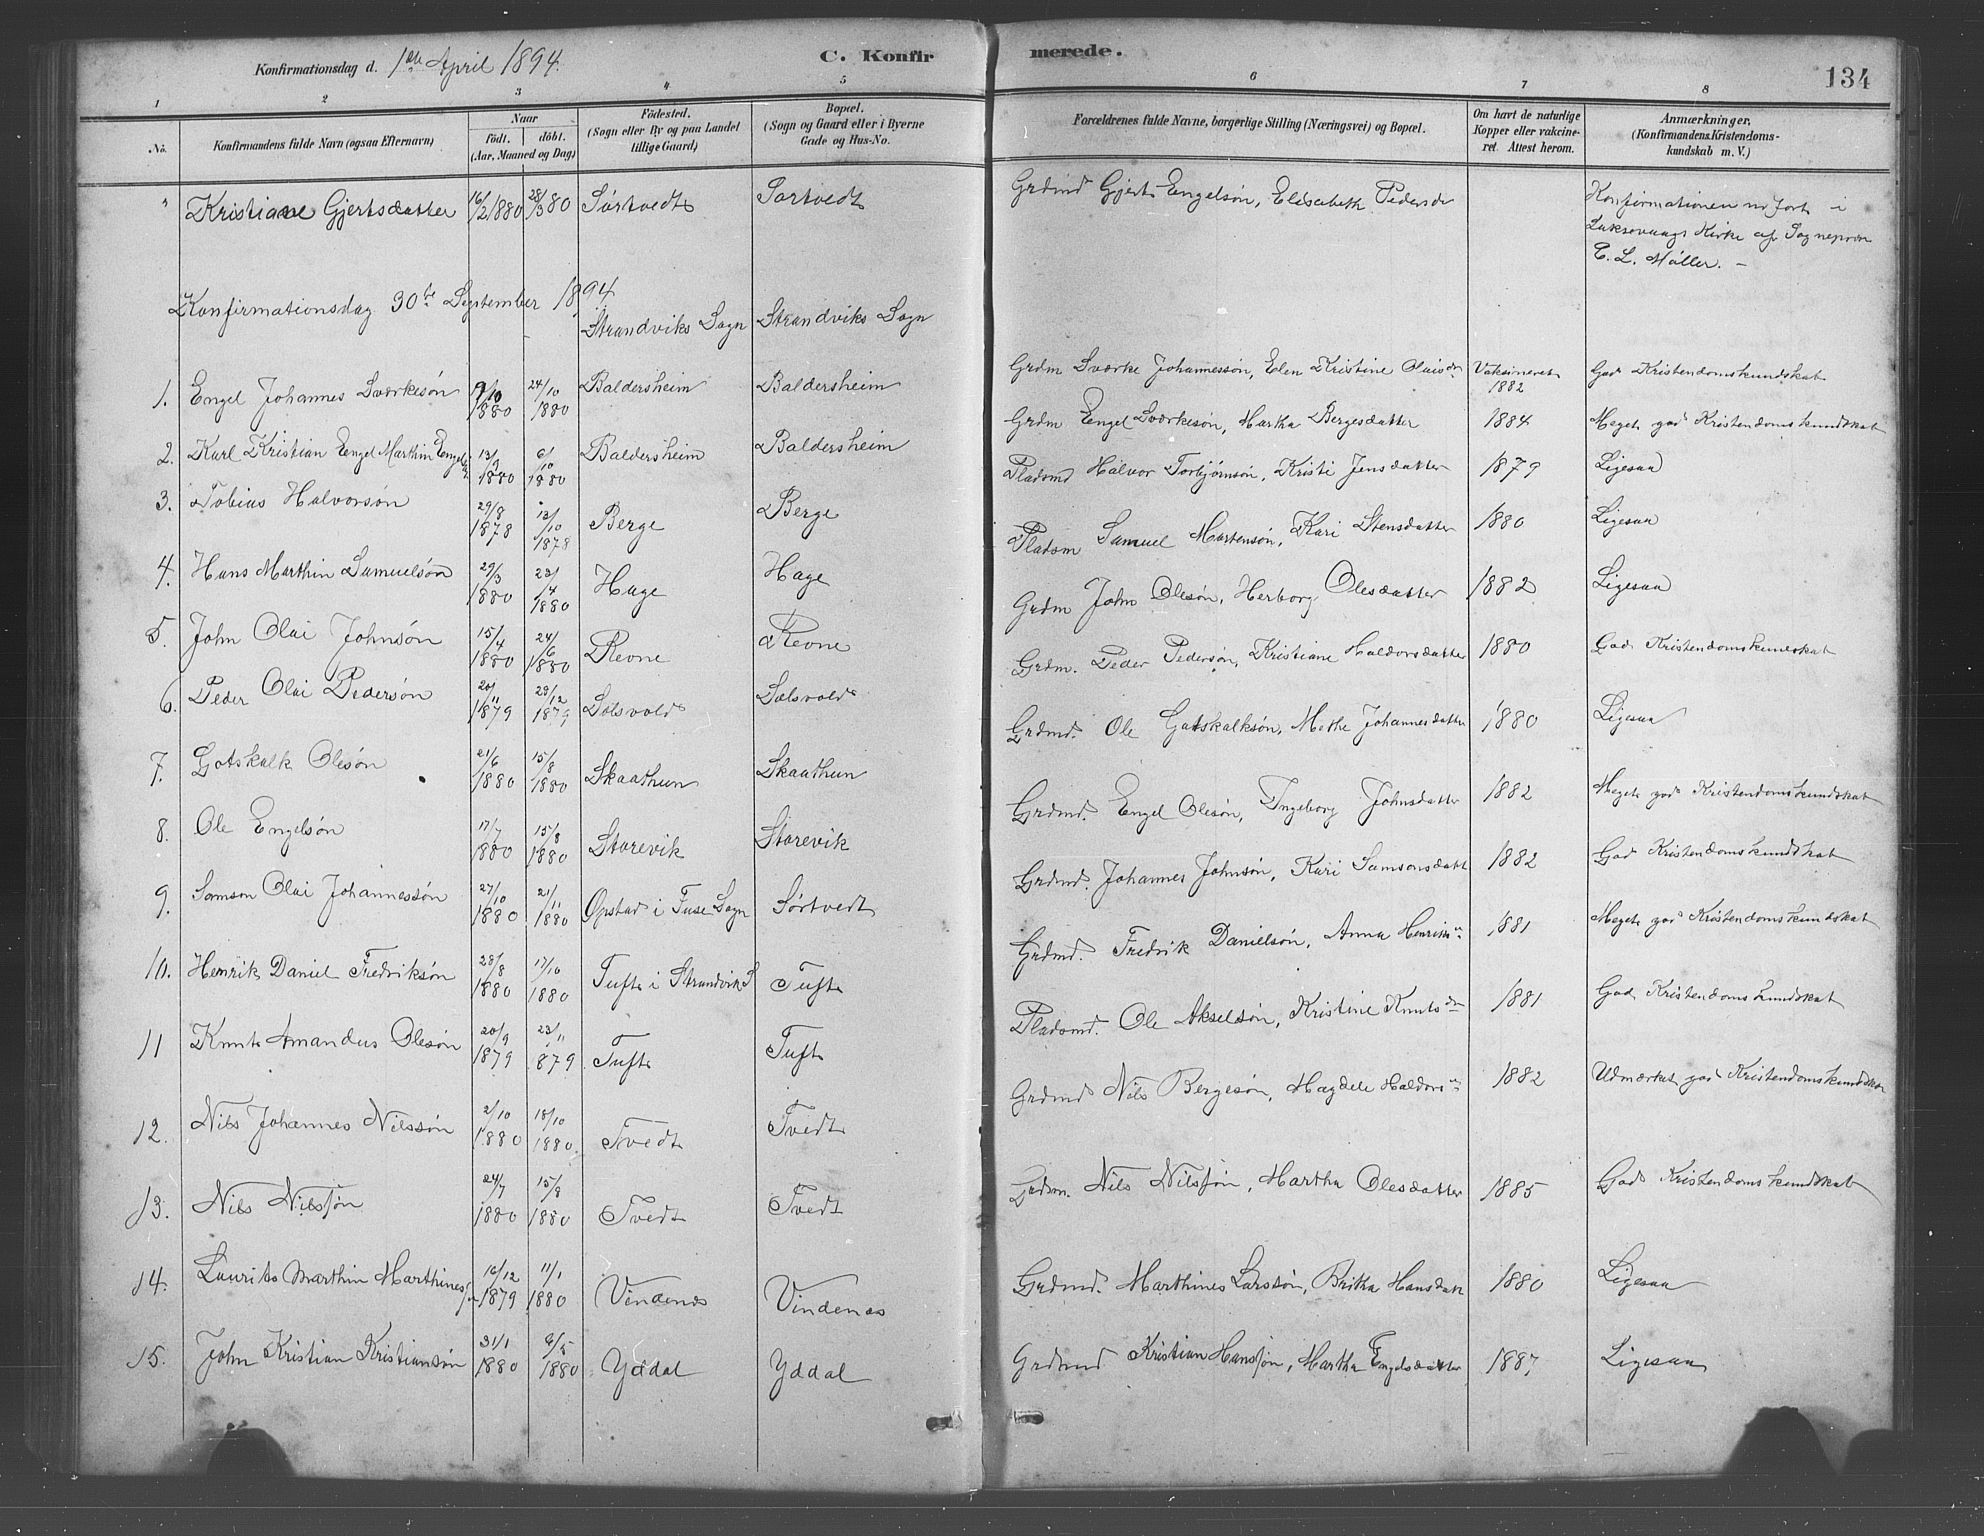 Konfirmationsdag d. 1ste April 1894.
C. Konfirmerede.
134
1 2 3 4 5 6 7 8
No. Konfirmandens fulde Navn (ogsaa Efternavn)
Naar
født. døbt.
(Aar, Maaned og Dag)
Fødested.
(Sogn eller By og paa Landet
tillige Gaard)
Bopæl.
(Sogn og Gaard eller i Byerne
Gade og Hus-No.
Forældrenes fulde Navne, borgerlige Stilling (Næringsvei) og Bopæl.
Om havt de naturlige
Kopper eller vakcine-
ret. Attest herom.
Anmærkninger,
(Konfirmandens Kristendoms-
kundskab m. V.)
" Kristiane Gjertsdatter 16/2 1880 28/3 80 Sørtvedt Sørtvedt Grdmd Gjert Engelsøn, Elisabeth Pedersdr Konfirmationen udført i
Laksevaags Kirke af Sognepræst
C. L. Møller. –
Konfirmationsdag 30te September 1894.
Strandviks Sogn Strandviks Sogn
1. Engel Johannes Sværkesøn 9/10 1880 24/10 1880 Baldersheim Baldersheim Grdm Sværke Johannessøn, Elen Kristine Olaisdr Vaksineret 1882 God Kristendomskundskab
2. Karl Kristian Engel Marthin Engels. 13/3 1880 6/10 1880 Baldersheim Baldersheim Grdm Engel Sværkesøn, Martha Bergesdatter 1884 Meget god Kristendomskundskab
3. Tobias Halvorsøn 29/8 1878 13/10 1878 Berge Berge Pladsmd Halvor Torbjørnsøn, Kristi Jensdatter 1879 Ligesaa
4. Hans Marthin Samuelsøn 29/3 1880 23/4 1880 Hage Hage Pladsm Samuel Martensøn, Kari Stensdatter 1880 Ligesaa
5. John Olai Johnsøn 15/4 1880 24/6 1880 Revne Revne Grdm John Olesøn, Herborg Olesdatter 1882 Ligesaa
6. Peder Olai Pedersøn 20/11 1879 23/12 1879 Solsvold Solsvold Grdm. Peder Pedersøn, Kristiane Haldorsdatter 1880 God Kristendomskundskab
7. Gotskalk Olesøn 21/6 1880 15/8 1880 Skaathun Skaathun Grdmd. Ole Gotskalksøn, Methe Johannesdatter 1880 Ligesaa
8. Ole Engelsøn 17/7 1880 15/8 1880 Storevik Storevik Grdmd. Engel Olesøn, Ingeborg Johnsdatter 1882 Meget god Kristendomskundskab
9. Samson Olai Johannessøn 27/10 1880 21/11 1880 Opstad i Fuse Sogn Sørtvedt Grdmd. Johannes Johnsøn, Kari Samsonsdatt 1882 God Kristendomskundskab
10. Henrik Daniel Fredriksøn 28/8 1880 17/10 1880 Tuft i Strandvik S Tuft Grdmd. Fredrik Danielsøn, Anna Henriks 1881 Meget god Kristendomskundskab
11 Knut Amandus Olesøn 20/9 1879 23/11 1879 Tuft Tuft Pladsmd. Ole Akselsøn, Kristine Knutsdr 1881 God Kristendomskundskab
12. Nils Johannes Nilssøn 2/10 1880 18/10 1880 Tvedt Tvedt Grdmd Nils Bergesøn, Magdele Haldors 1882 Udmærket god Kristendomskundskab
13. Nils Nilssøn 24/7 1880 15/8 1880 Tvedt Tvedt Grdsm. Nils Nilssøn, Martha Olesdatter 1885 God Kristendomskundskab
14. Laurits Marthin Marthinessøn 16/12 1879 11/1 1880 Vindenes Vindenes Grdmd. Marthines Larssøn, Britha Hansdatt 1880 Ligesaa
15. John Kristian Kristiansøn 31/1 1880 9/5 1880 Yddal Yddal Grdmd Kristian Hanssøn, Martha Engelsdatter 1887 Ligesaa